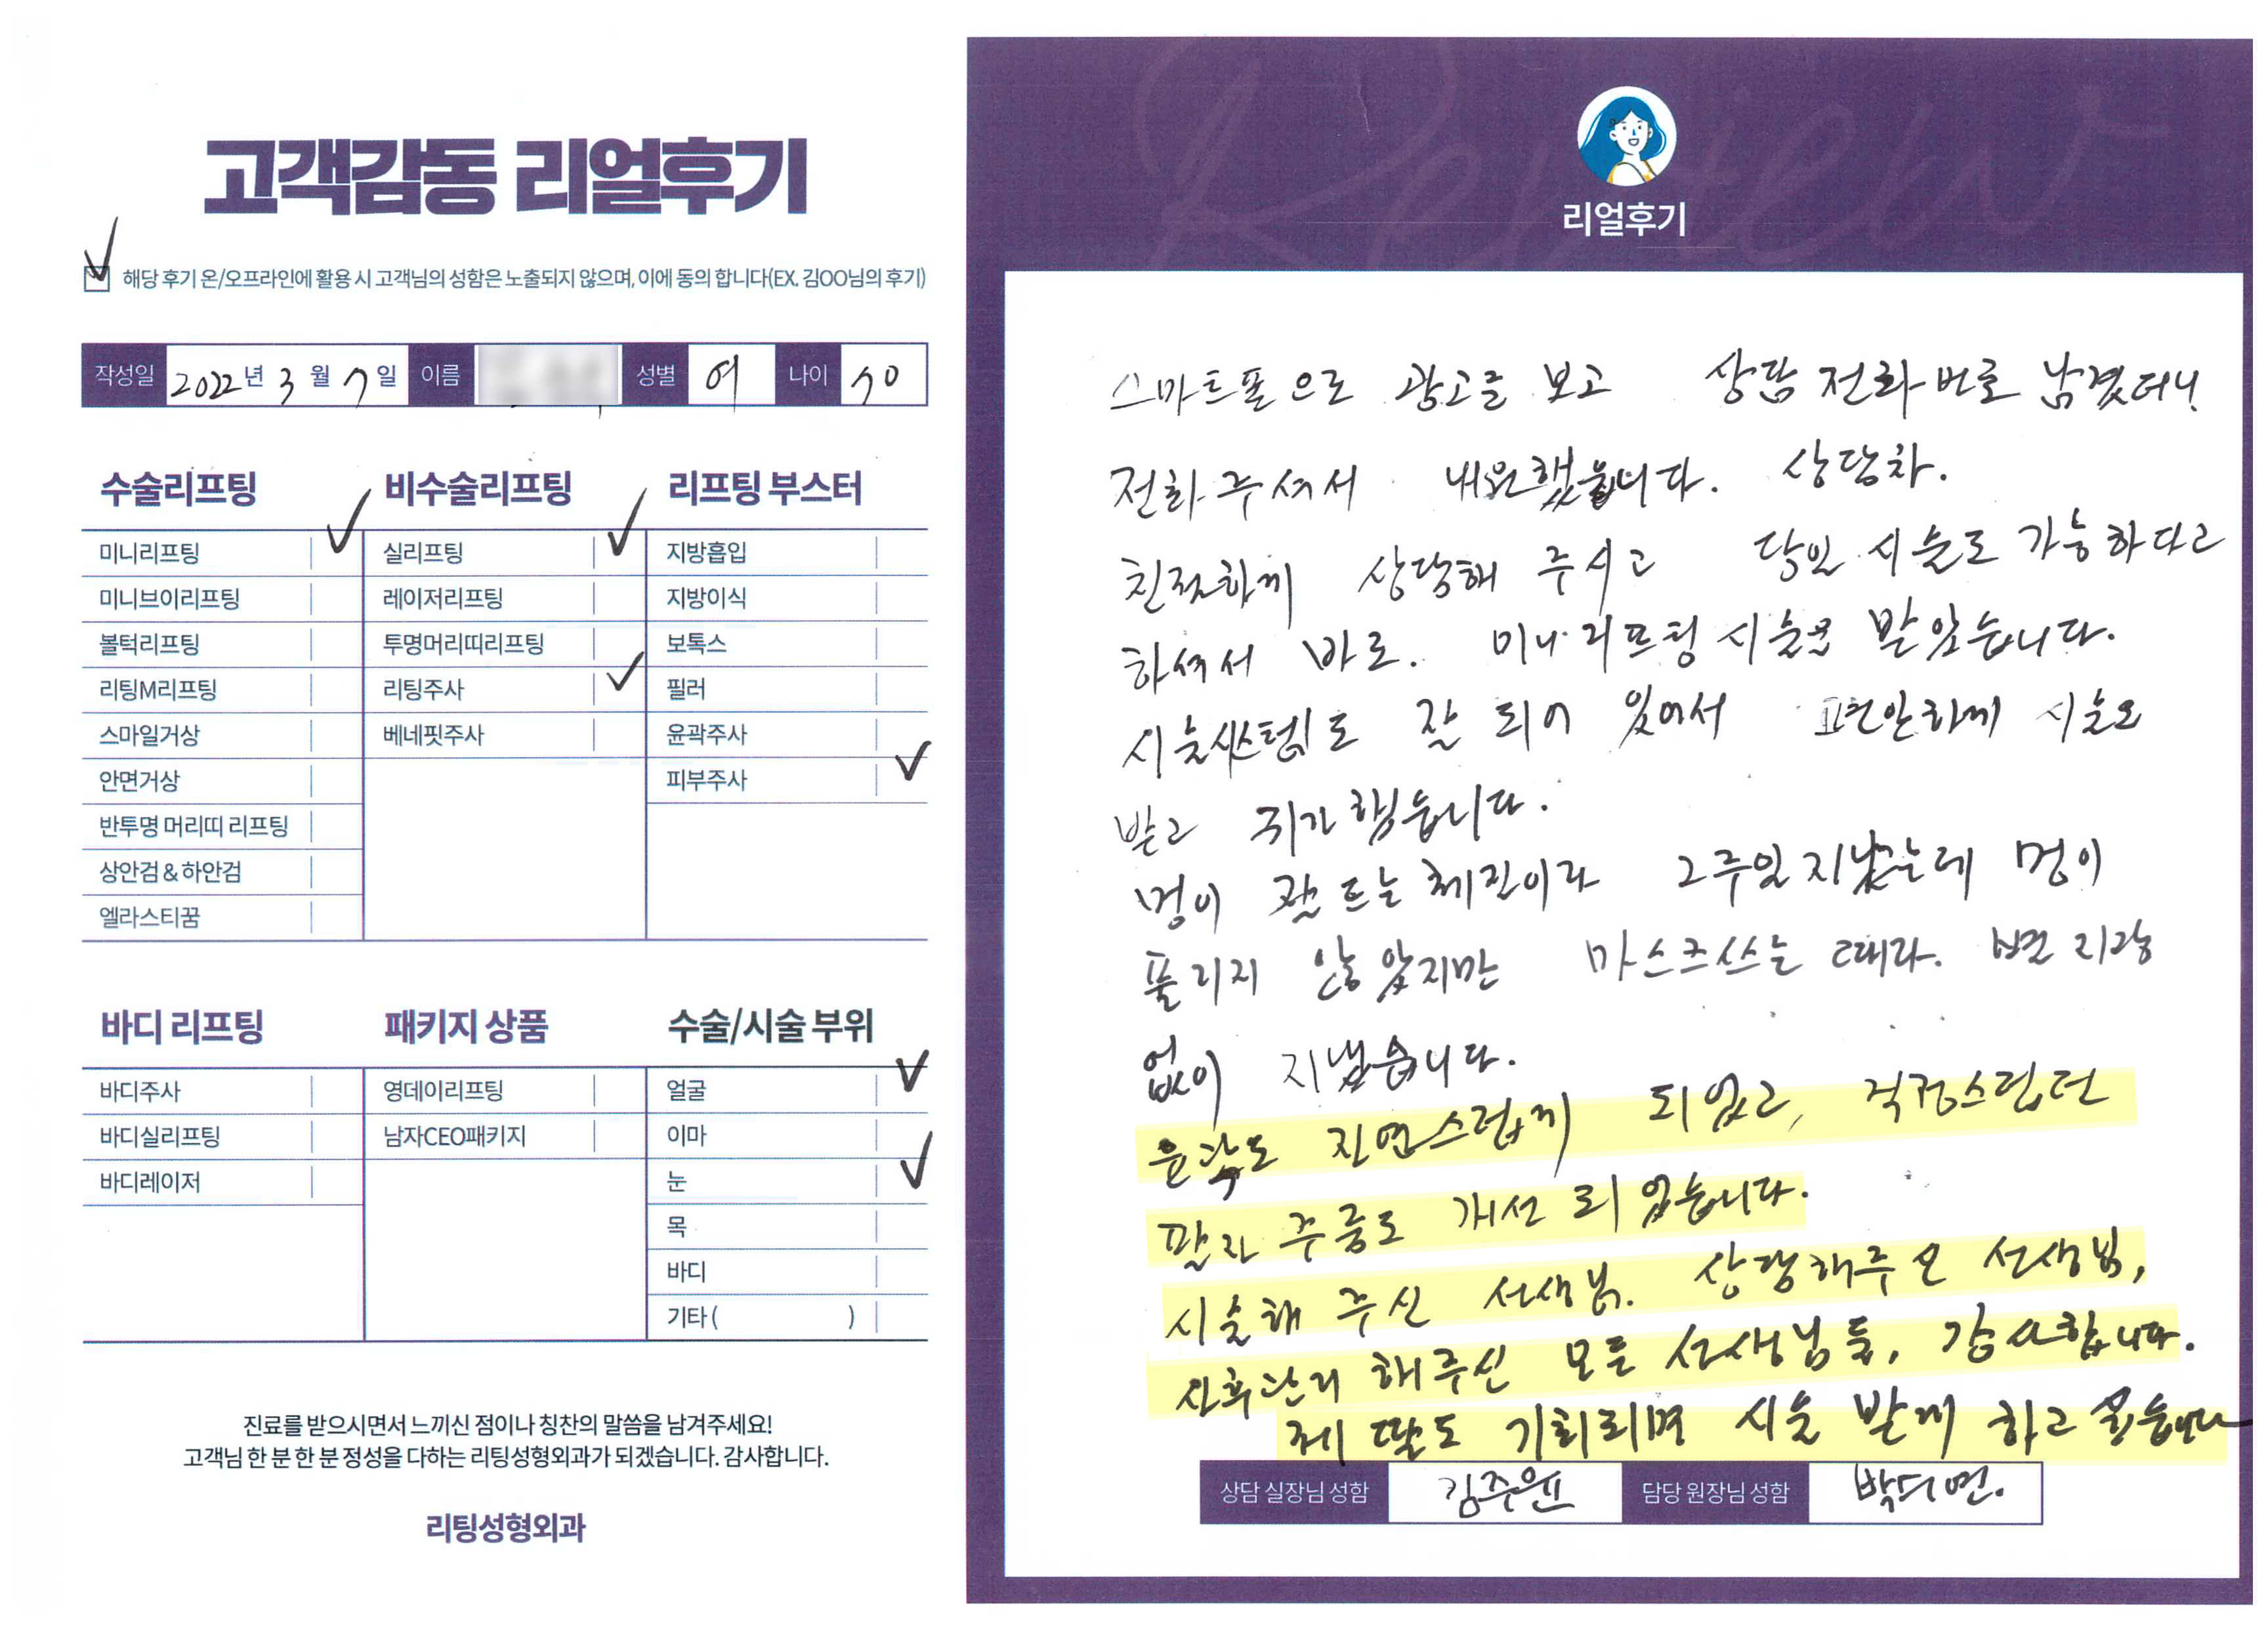 고객감동 리얼후기
해당 후기 온/오프라인에 활용 시 고객님의 성함은 노출되지 않으며, 이에 동의 합니다(EX. 김OO님의 후기)
작성일 2022년 3월 7일 이름 성별 여 나이 70
수술리프팅
미니리프팅
미니브이리프팅
볼턱리프팅
리팅M리프팅
스마일거상
안면거상
반투명 머리띠 리프팅
상안검 & 하안검
엘라스티꿈
비수술리프팅
실리프팅
레이저리프팅
투명머리띠리프팅
리팅주사
베네핏주사
리프팅 부스터
지방흡입
지방이식
보톡스
필러
윤곽주사
피부주사
바디 리프팅
바디주사
바디실리프팅
바디레이저
패키지 상품
영데이리프팅
남자CEO패키지
수술/시술 부위
얼굴
이마
눈
목
바디
기타 ( )
진료를 받으시면서 느끼신 점이나 칭찬의 말씀을 남겨주세요!
고객님 한 분 한 분 정성을 다하는 리팅성형외과가 되겠습니다. 감사합니다.
리팅성형외과
Review
리얼후기
스마트폰으로 광고를 보고 상담 전화번호 남겼더니
전화주셔서 내원했습니다. 상담차.
친절하게 상담해 주시고 당일 시술도 가능하다고
하셔서 바로. 미니리프팅 시술을 받았습니다.
시술시스템도 잘 되어 있어서 편안하게 시술
받고 귀가했습니다.
멍이 잘 드는 체질이라 2주일 지났는데 멍이
풀리지 않았지만 마스크쓰는 때라. 별 지장
없이 지냈습니다.
윤곽도 자연스럽게 되었고, 걱정스럽던
팔자 주름도 개선 되었습니다.
시술해 주신 선생님. 상담해주신 선생님,
사후관리 해주신 모든 선생님들, 감사합니다.
제 딸도 기회되면 시술 받게 하고 싶습니다
상담 실장님 성함 김주윤 담당 원장님 성함